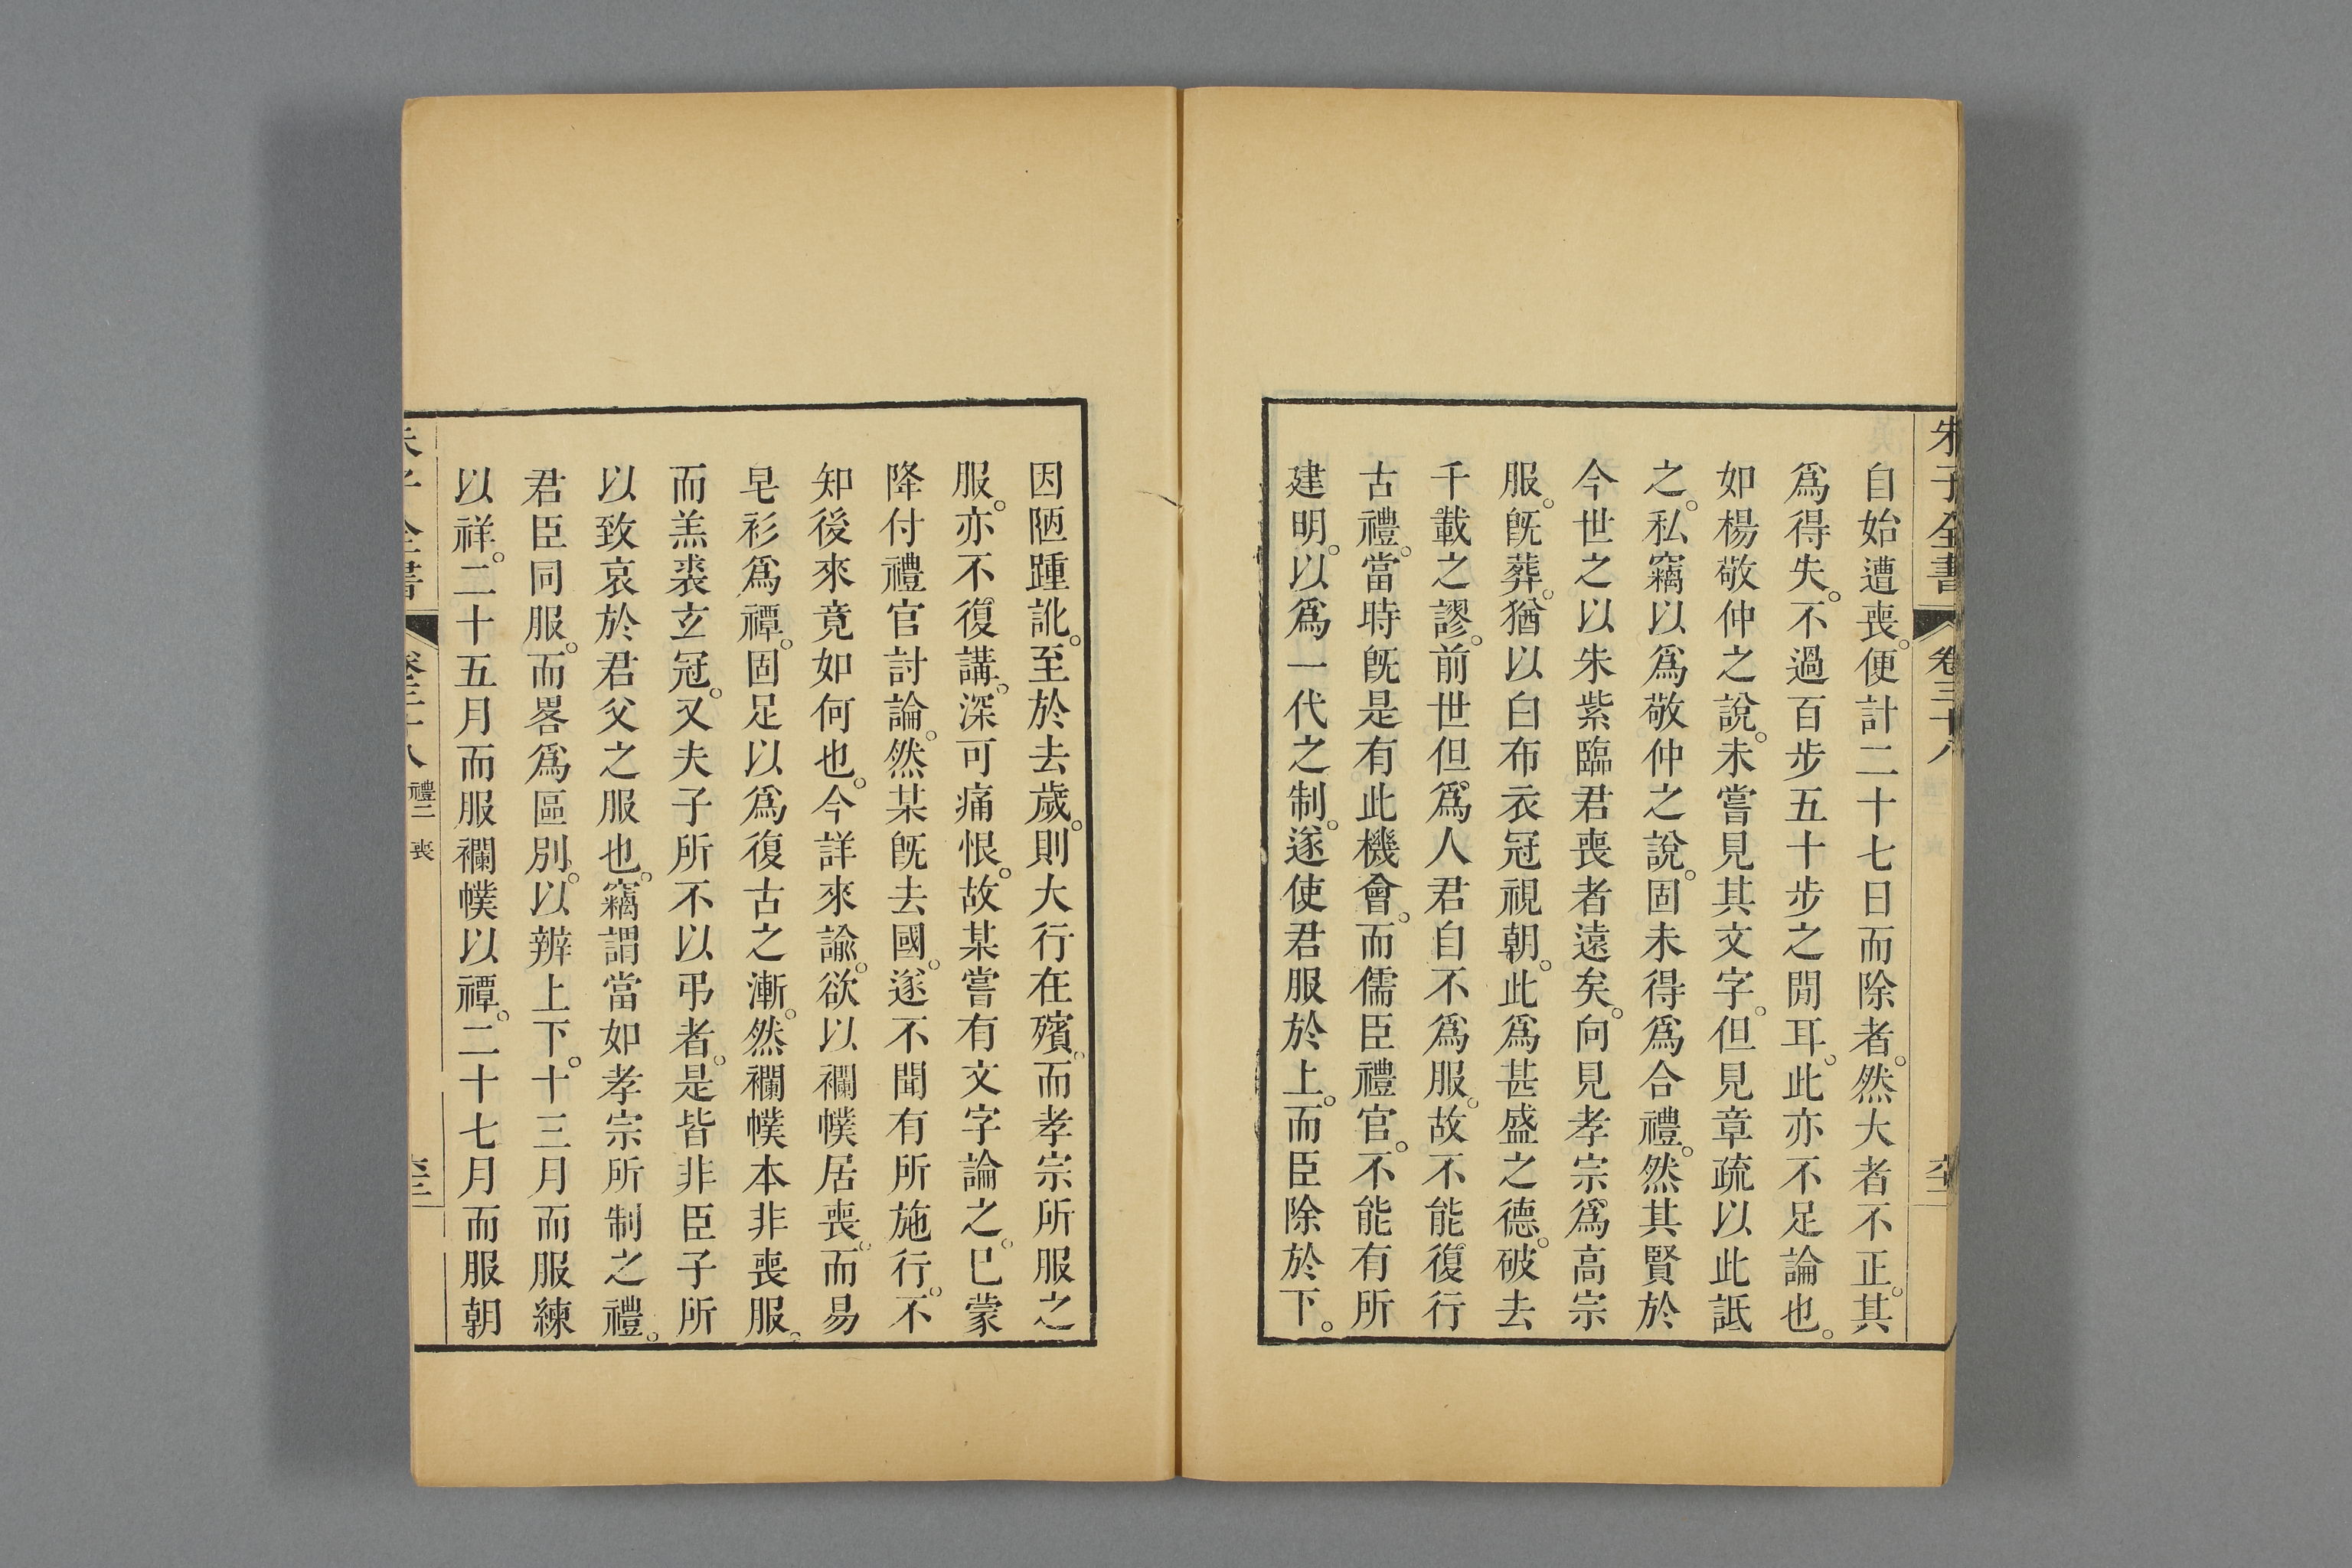 朱子全書 卷三十八
自始遭喪。便計二十七日而除者。然大者不正。其
爲得失。不過百步五十步之閒耳。此亦不足論也。
如楊敬仲之說。未嘗見其文字。但見章疏以此詆
之。私竊以爲敬仲之說。固未得爲合禮。然其賢於
今世之以朱紫臨君喪者遠矣。向見孝宗爲高宗
服。旣葬。猶以白布衣冠視朝。此爲甚盛之德。破去
千載之謬。前世但爲人君自不爲服。故不能復行
古禮。當時旣是有此機會。而儒臣禮官。不能有所
建明。以爲一代之制。遂使君服於上。而臣除於下。
因陋踵訛。至於去歲。則大行在殯。而孝宗所服之
服。亦不復講。深可痛恨。故某嘗有文字論之。已蒙
降付禮官討論。然某旣去國。遂不聞有所施行。不
知後來竟如何也。今詳來諭。欲以襴幞居喪。而易
皁衫爲禫。固足以爲復古之漸。然襴幞本非喪服。
而羔裘玄冠。又夫子所不以弔者。是皆非臣子所
以致哀於君父之服也。竊謂當如孝宗所制之禮。
君臣同服。而畧爲區別。以辨上下。十三月而服練
以祥。二十五月而服襴幞以禫。二十七月而服朝
朱子全書 卷三十八 禮二 喪